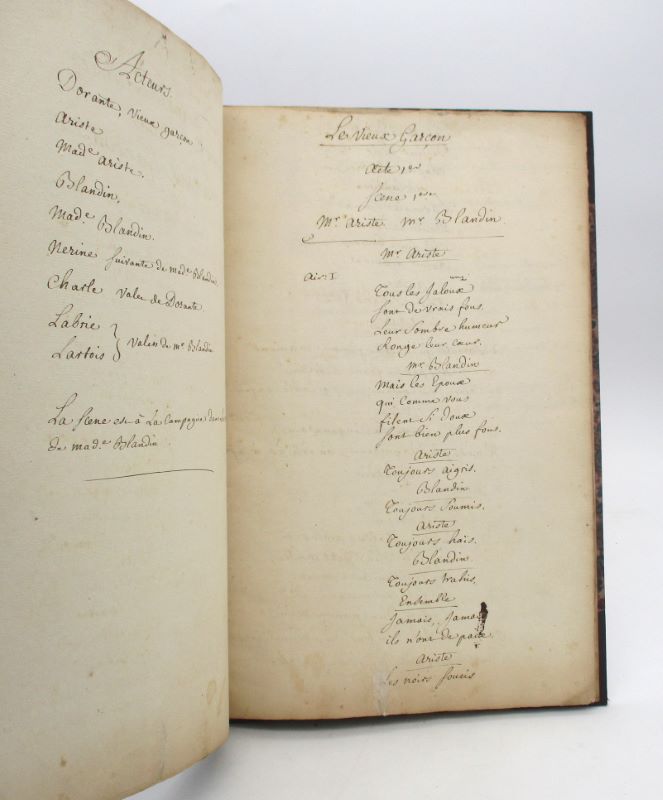 Acteurs.
Dorante, vieux garçon
Ariste
Mad.e Ariste.
Blandin,
Mad.e Blandin.
Nerine suivante de mad.e Blandin
Charle valet de Dorante
Labrie
Lartois } valets de Mr. Blandin
La scene est à La Campagne
de mad.e Blandin.
Le Vieux Garçon
Acte 1er
Scene 1ere
Mr. Ariste Mr. Blandin
Mr. Ariste
Air: 1
Tous les Jaloux
sont de vrais fous.
Leur sombre humeur
Ronge leur cœur.
Mr. Blandin
Mais les Epoux
qui comme vous
filent si doux
sont bien plus fous.
Ariste
Toujours aigris.
Blandin
Toujours soumis.
Ariste
Toujours hais.
Blandin
Toujours trahis.
Ensemble
Jamais, Jama
ils n'ont de paix.
Ariste
Les noirs soucis